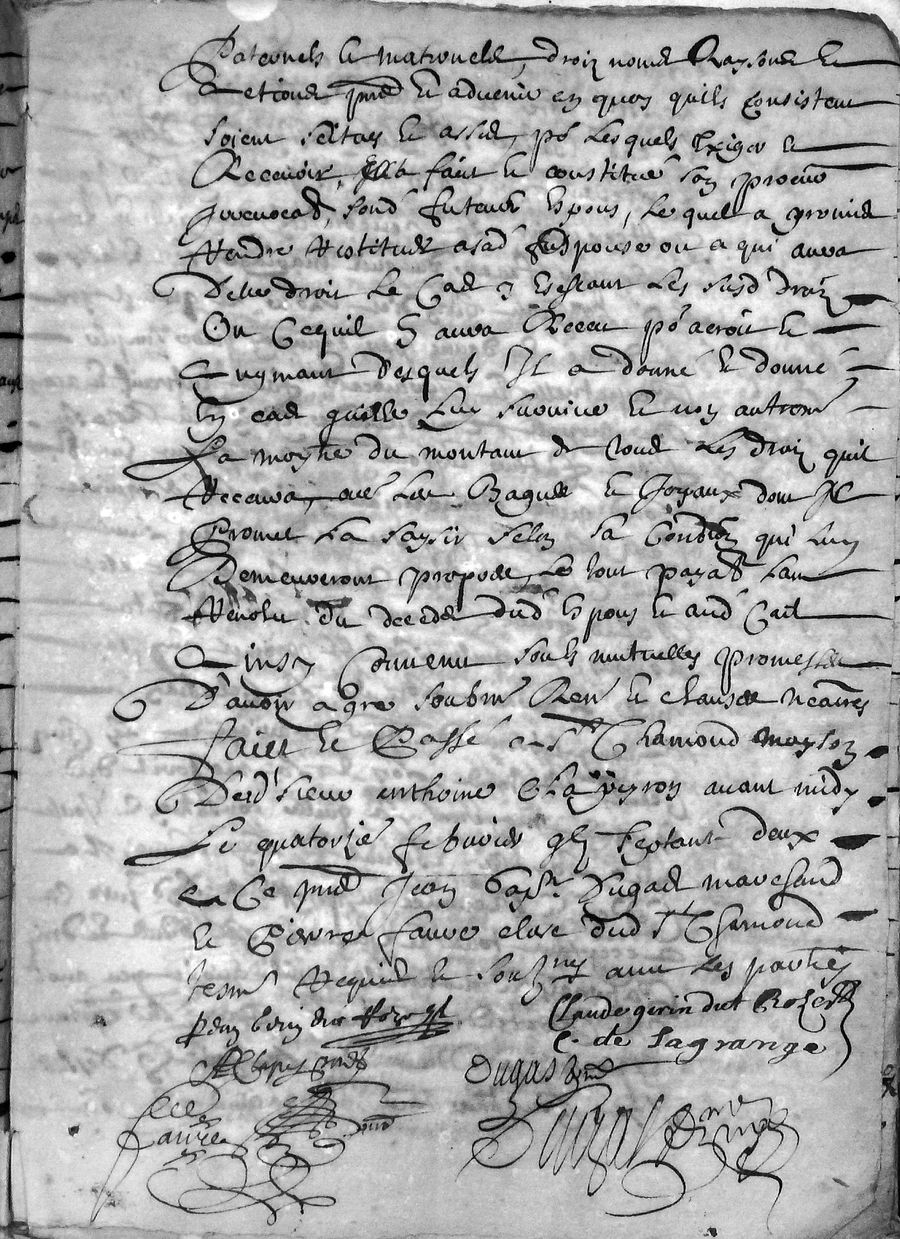 Paternels et maternels, droiz noms Raysons et
actions pnts et advenir en quoy quils consistent
soient scitues et assis, pr lesquels Exiger et
Recevoir, Elle a fait et constitué son procur
Irrevocab, sond futeur Espous, Lequel a promis
Rendre Restituer a sad fut Espouse ou a qui aura
Delle droit Le Cas y Escheant Les susd droiz
Ou Cequil En aura Receu pr accroit et
augmant Desquels Il a donné et donne
En cas quelle Luy survive et non autremt
La moytie du montant de tous Les droiz quil
Recevra, avec Les Bagues et Joyaux dont Il
Promet La saysir selon sa Condion qui Luy
Demeureront propres, Le tout payab Lan
Revolu du deceds dud Espous et aud Cas
Ainsy Convenu soubs mutuelles promesses
D'avoir a gre soubmns Renons et clauses necaires
faict et Passé a St Chamond mayson
Desd sieur anthoine Chapeyron avant midy
Le quatorzie febvrier gbj septant deux
en Ce pnce Jean bapt Dugas marchand
et Pierre faure clerc dud St Chamond
tesmns Requis et soubnes avec Les parties
Claude gerin dict Rozet
C. de Lagrange
Dugas
faure
Dugas